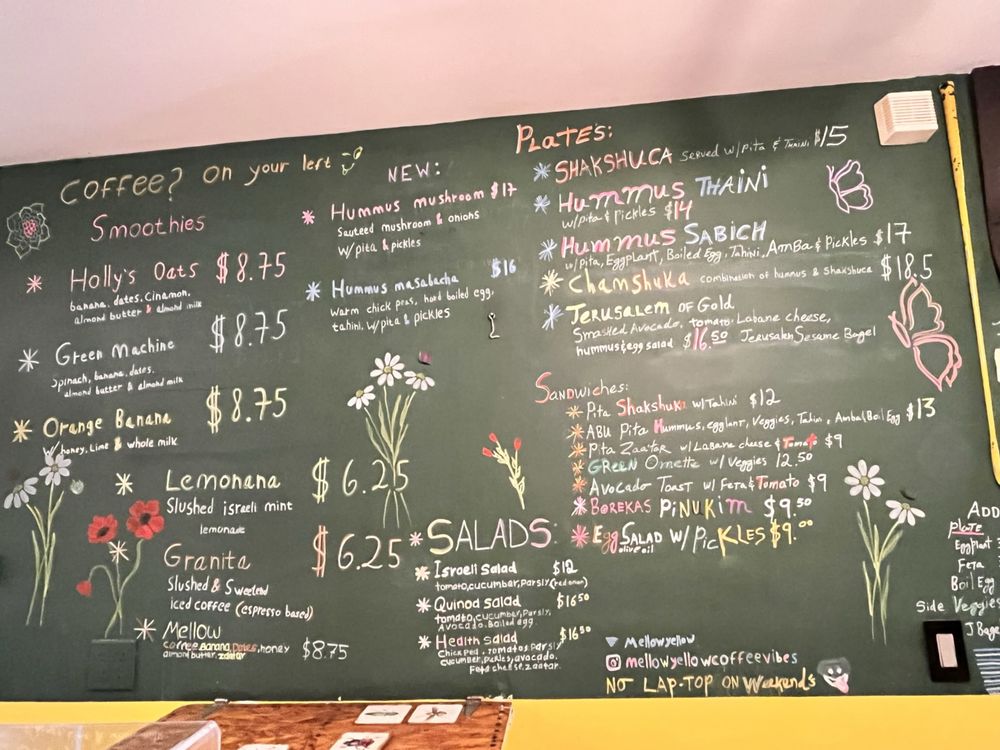 Coffee? On your left
Smoothies
Holly's Oats $8.75
banana, dates, Cinamon,
almond butter & almond milk
Green Machine $8.75
Spinach, banana, dates,
almond butter & almond milk
Orange Banana $8.75
honey, Lime & whole milk
Lemonana $6.25
Slushed israeli mint
lemonade
Granita $6.25
Slushed & Sweetend
iced coffee (espresso based)
Mellow
coffee, Banana, Dates, honey $8.75
almond butter, zaatar
NEW:
Hummus mushroom $17
Sauteed mushroom & onions
w/pita & pickles
Hummus masabacha $16
Warm chick peas, hard boiled egg,
tahini, w/pita & pickles
SALADS:
Israeli Salad $12
tomato, cucumbar, parsly (red onion)
Quinoa salad $16.50
tomato, cucumbar, Parsly,
Avocado, Boiled egg.
Health salad $16.50
Chick Pea, tomatos, parsly
cucumber, pickles, avocado,
Feta cheese, zaatar.
PLATES:
SHAKSHUCA served w/pita & THAINI $15
Hummus THAINI
w/pita & pickles $14
Hummus SABICH
w/pita, Eggplant, Boiled Egg, Tahini, AmBa & Pickles $17
Chamshuka combination of humus & shakshuca $18.5
JERUSALEM OF GOLD
Smashed Avocado, tomato, Labane cheese,
hummus & egg salad $16.50 Jerusalem Sesame Bagel
Sandwiches:
Pita Shakshuka w/Tahini $12
ABU Pita Hummus, eggplant, Veggies, Tahini, Amba, Boil Egg $13
Pita Zaatar w/Labane cheese & Tomato $9
GREEN Omette w/Veggies 12.50
AVOCADO TOAST w/ FETA & TOMATO $9
BOREKAS PINUKIM $9.50
Egg SALAD W/ PICKLES $9.00
olive oil
Mellowyellow
mellowyellowcoffeevibes
NO LAP-TOP ON Weekends
ADD
plate
Eggplant
Feta
Boil Egg
Side Veggies
J Bage